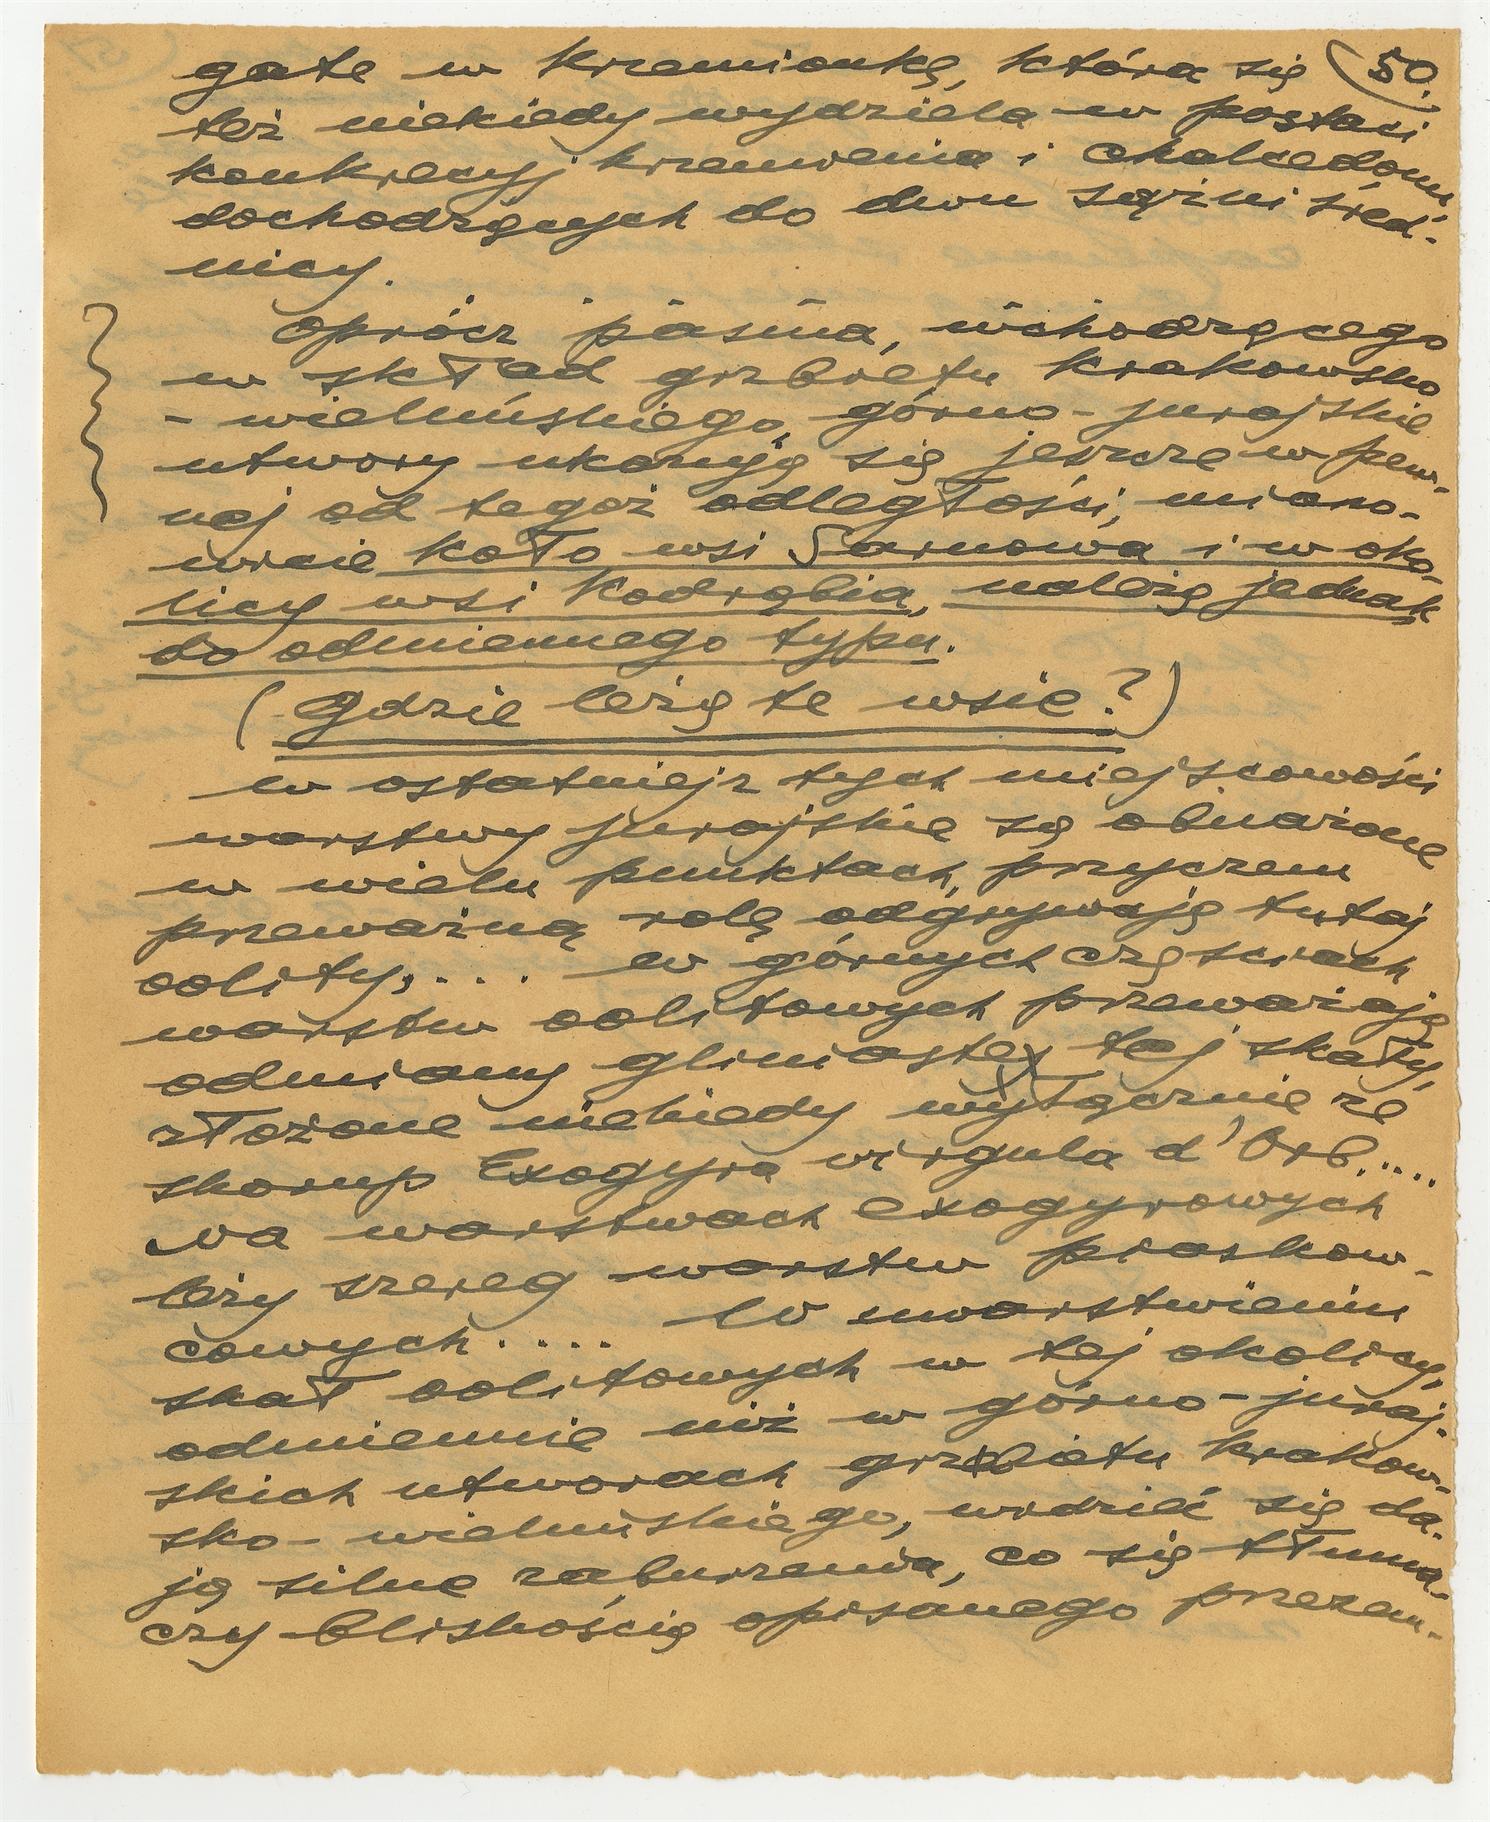 gate w krzemionkę, która się (50.
też niekiedy wydziela w postaci
konkrecyj krzemienia i chalcedonu
dochodzących do dwu sążni śred-
nicy.
Oprócz pasma, wchodzącego
w skład grzbietu krakowsko
- wieluńskiego, górno-jurajskie
utwory ukazują się jeszcze w pew-
nej od tegoż odległości, miano-
wicie koło wsi Sarnowa i w oko-
licy wsi Kodrębia, należą jednak
do odmiennego typu.
(gdzie leżą te wsie?)
w ostatniej z tych miejscowości
warstwy jurajskie są obnażone
w wielu punktach, przyczem
przeważną rolę odgrywają tutaj
oolity,.... w górnych częściach
warstw oolitowych przeważają
odmiany gliniaste tej skały,
złożone niekiedy wyłącznie ze
skorup Exogyra virgula d'Orb.....
Na warstwach exogyrowych
leży szereg warstw piaskow-
cowych..... W uwarstwieniu
skał oolitowych w tej okolicy,
odmiennie niż w górno-juraj-
skich utworach grzbietu krakow-
sko-wieluńskiego, widzieć się da-
ją silne zaburzenia, co się tłuma-
czy bliskością opisanego przezem-